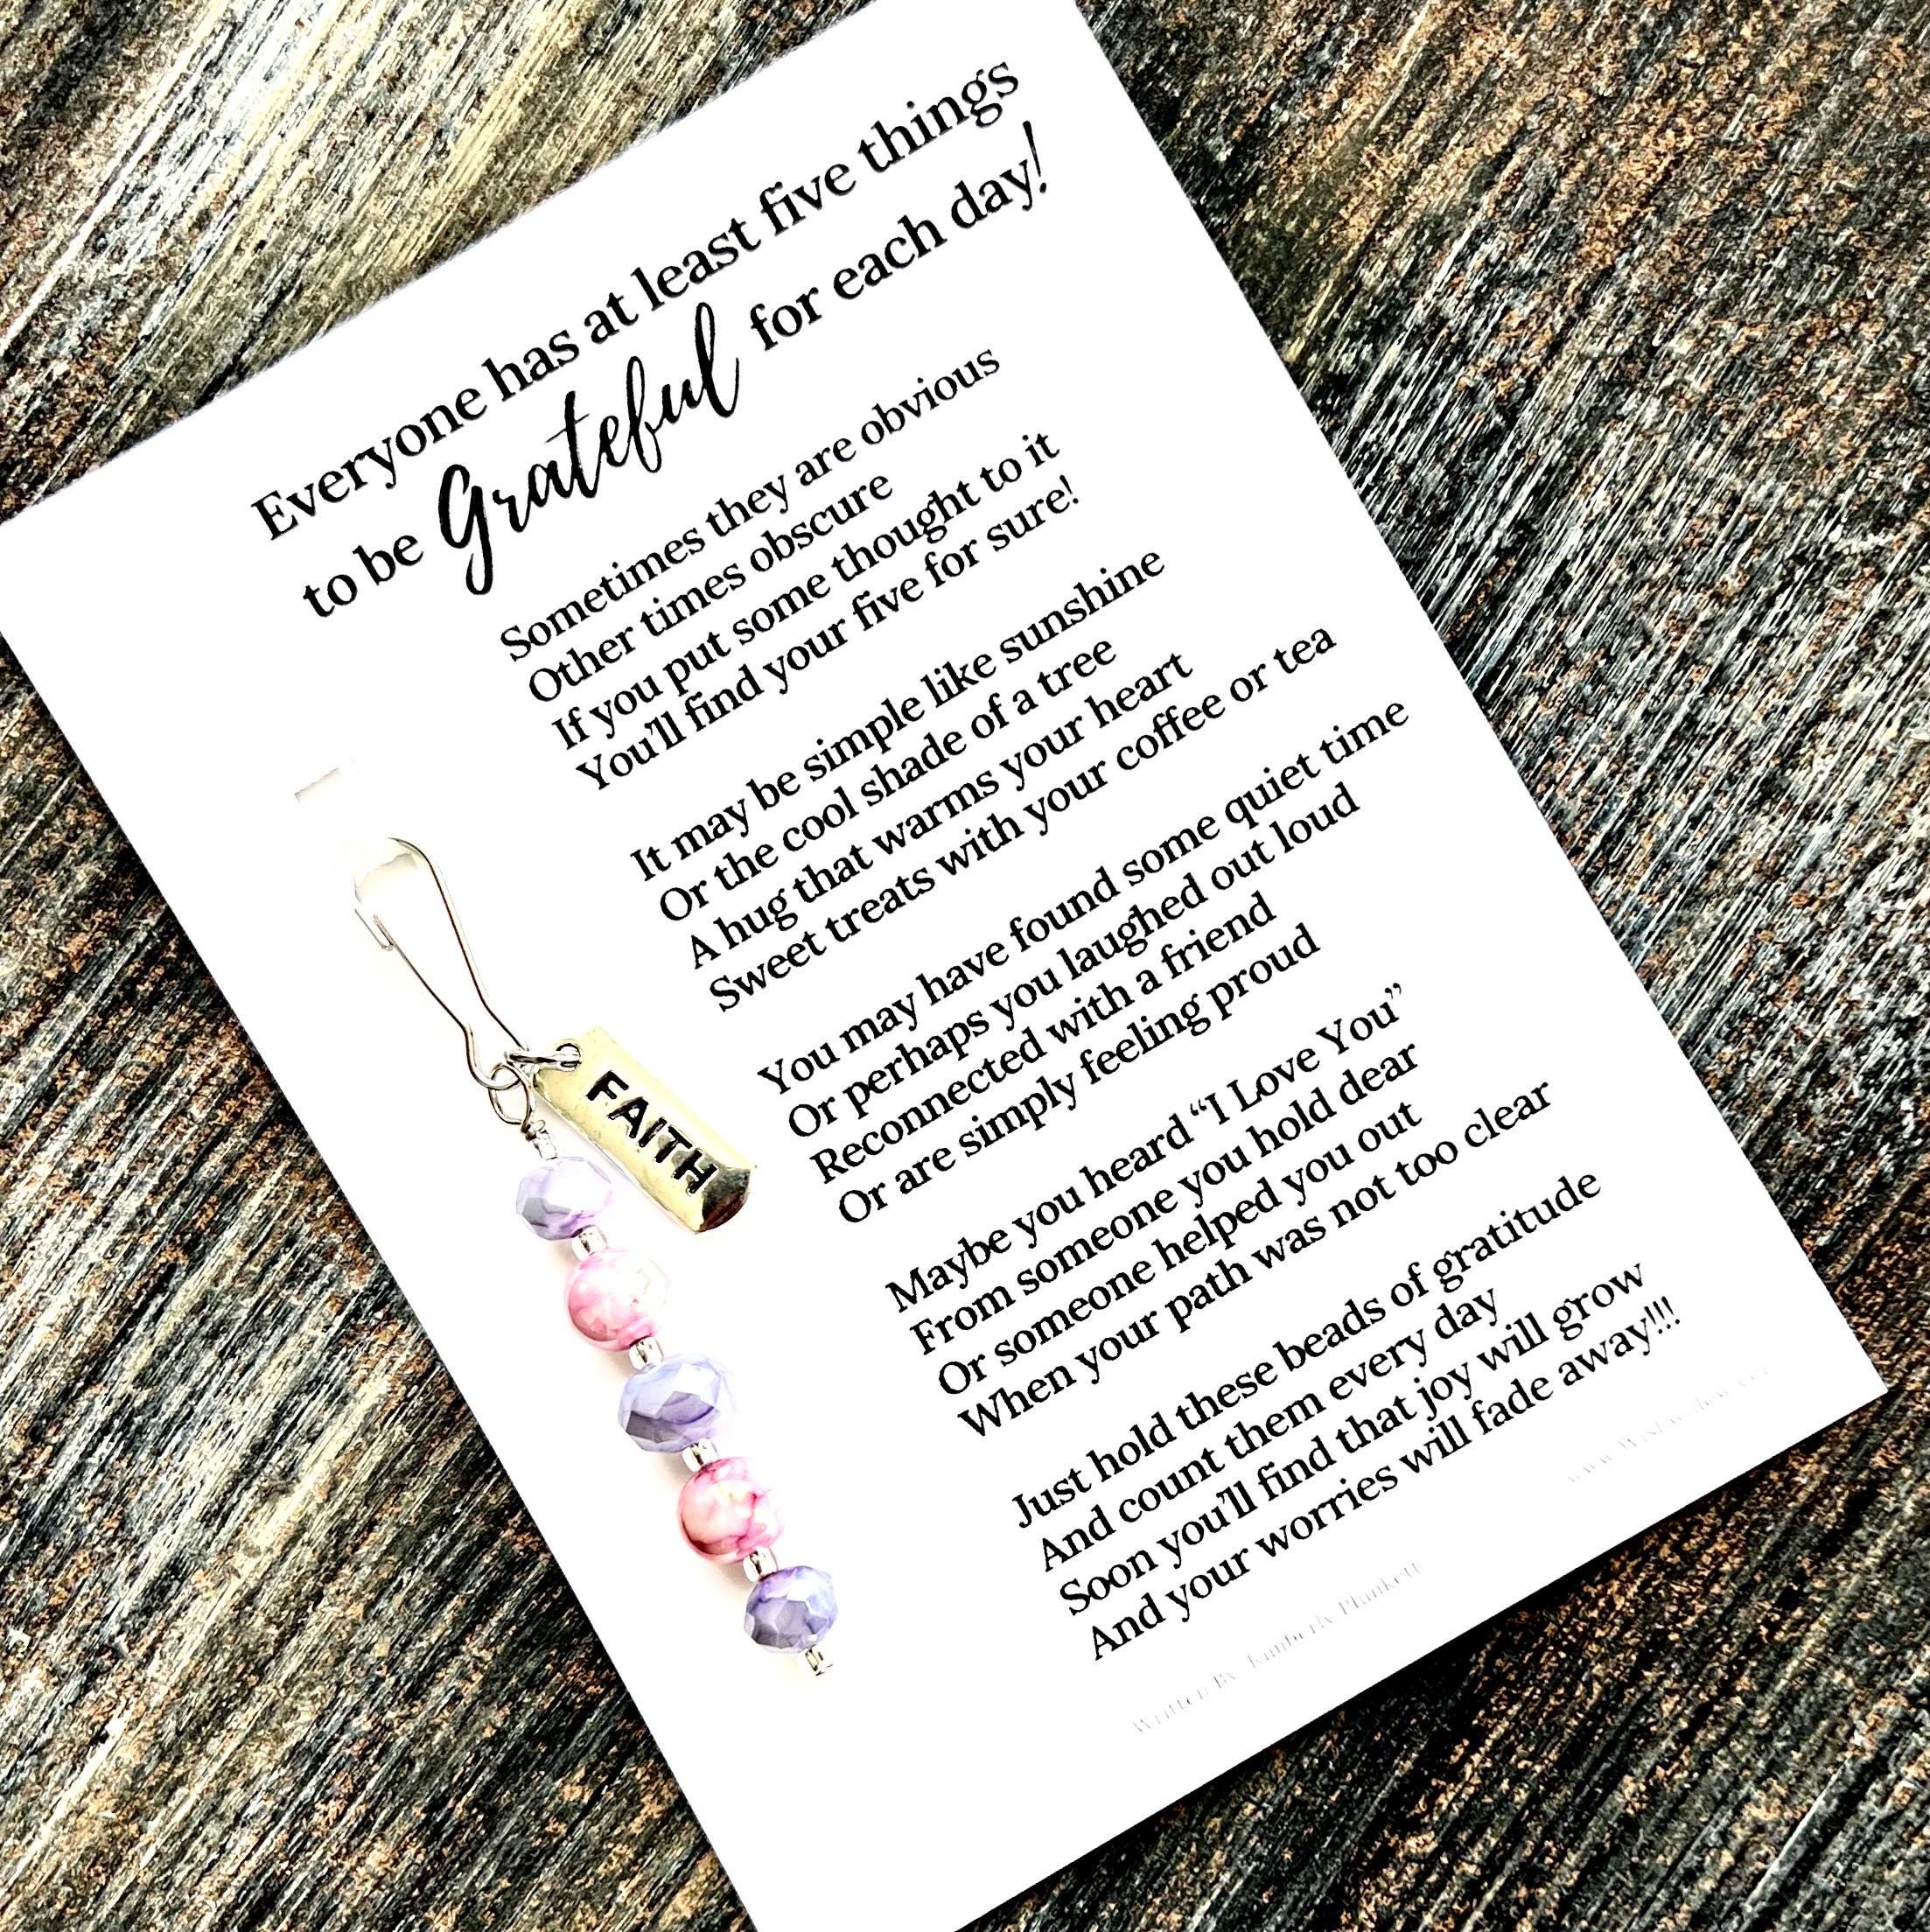 Everyone has at least five things
to be Grateful for each day!
Sometimes they are obvious
Other times obscure
If you put some thought to it
You'll find your five for sure!
It may be simple like sunshine
Or the cool shade of a tree
A hug that warms your heart
Sweet treats with your coffee or tea
You may have found some quiet time
Or perhaps you laughed out loud
Reconnected with a friend
Or are simply feeling proud
Maybe you heard “I Love You”
From someone you hold dear
Or someone helped you out
When your path was not too clear
Just hold these beads of gratitude
And count them every day
Soon you'll find that joy will grow
And your worries will fade away!!!
Written By: Kimberly Plunkett
FAITH